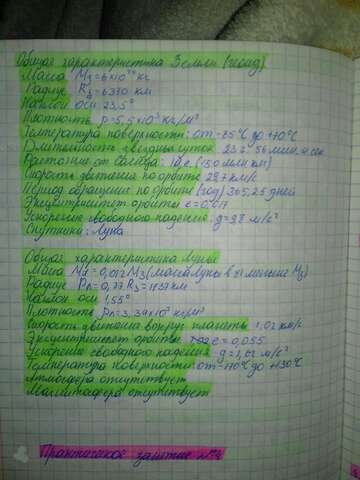 Общая характеристика Земли (геоид)
Масса M₃ = 6×10²⁴ кг
Радиус R₃ = 6370 км
Наклон оси 23,5°
Плотность ρ = 5,5×10³ кг/м³
Температура поверхности: от -85°C до +70°C
Длительность звездных суток: 23ч 56 мин. 4 сек
Расстояние от Солнца: 1а.е. (150 млн км)
Скорость движения по орбите 29,7 км/с
Период обращения по орбите (год) 365,25 дней
Эксцентриситет орбиты e = 0,017
Ускорение свободного падения: g = 9,8 м/с²
Спутники: Луна
Общая характеристика Луны
Масса Mл = 0,012 M₃ (масса Луны в 81 меньше M₃)
Радиус Rл = 0,27 R₃ = 1737 км
Наклон оси 1,55°
Плотность ρл = 3,34×10³ кг/м³
Скорость движения вокруг планеты 1,02 км/с
Эксцентриситет орбиты e = 0,055
Ускорение свободного падения g = 1,62 м/с²
Температура поверхности: от -170°C до +130°C
Атмосфера отсутствует
Магнитосфера отсутствует
Практическое занятие №